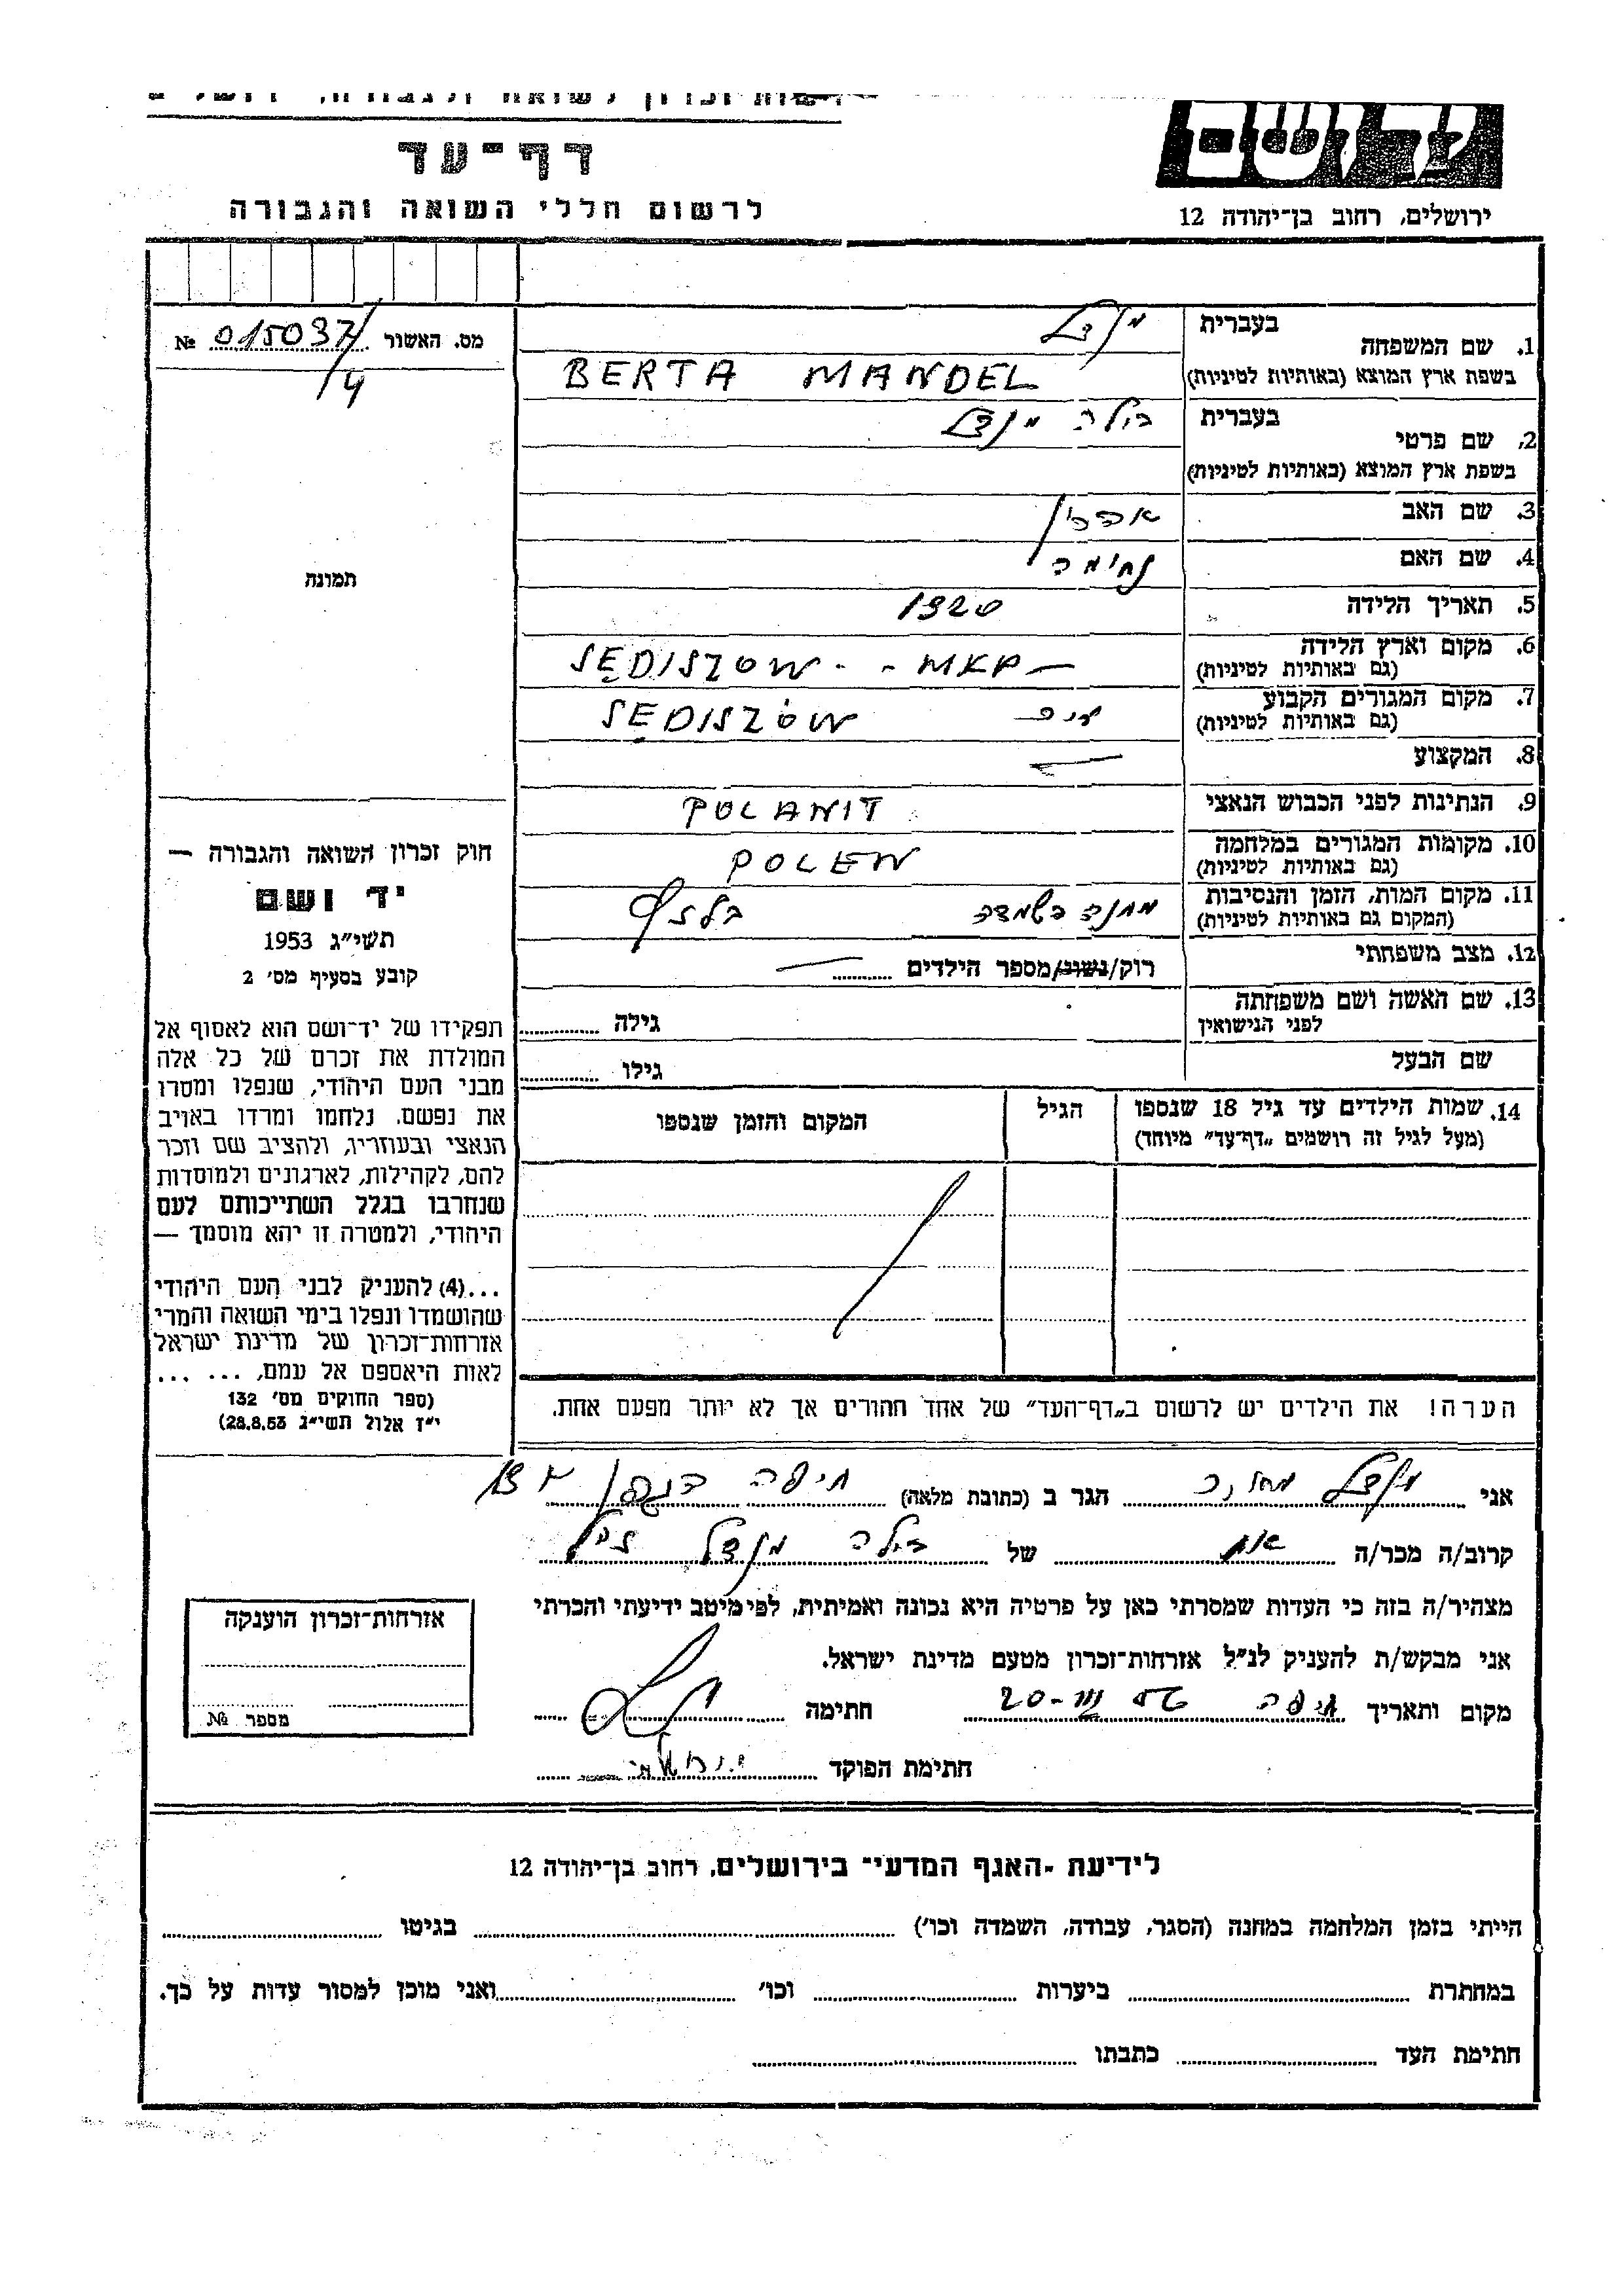 דף-עד
לרשום חללי השואה והגבורה
ידושם
ירושלים, רחוב בן-יהודה 12
מס. האשור 015037/4 №
1. שם המשפחה בעברית מנדל
בשפת ארץ המוצא (באותיות לטיניות) BERTA MANDEL
2. שם פרטי בעברית מנדל
בשפת ארץ המוצא (באותיות לטיניות)
3. שם האב אהרון
4. שם האם נחימה
5. תאריך הלידה 1920
6. מקום וארץ הלידה (גם באותיות לטיניות) SEDISZOW - - MKP -
7. מקום המגורים הקבוע (גם באותיות לטיניות) SEDISZÓW
8. המקצוע
9. הנתינות לפני הכבוש הנאצי POLANIT
10. מקומות המגורים במלחמה (גם באותיות לטיניות) POLEN
11. מקום המות, הזמן והנסיבות (המקום גם באותיות לטיניות) מחנה השמדה בלזץ
12. מצב משפחתי רוק/נשוי/מספר הילדים
13. שם האשה ושם משפחתה לפני הנישואין גילה
שם הבעל גילו
14. שמות הילדים עד גיל 18 שנספו
(מעל לגיל זה רושמים „דף-עד" מיוחד)
הגיל
המקום והזמן שנספו
תמונה
חוק זכרון השואה והגבורה —
יד ושם
תשי"ג 1953
קובע בסעיף מס' 2
תפקידו של יד-ושם הוא לאסוף אל
המולדת את זכרם של כל אלה
מבני העם היהודי, שנפלו ומסרו
את נפשם, נלחמו ומרדו באויב
הנאצי ובעוזריו, ולהציב שם וזכר
להם, לקהילות, לארגונים ולמוסדות
שנחרבו בגלל השתייכותם לעם
היהודי, ולמטרה זו יהא מוסמך —
...(4) להעניק לבני העם היהודי
שהושמדו ונפלו בימי השואה והמרי
אזרחות-זכרון של מדינת ישראל
לאות היאספם אל עמם, ... ...
(ספר החוקים מס' 132
י"ז אלול תשי"ג 28.8.53)
הערה! את הילדים יש לרשום ב„דף-העד" של אחד ההורים אך לא יותר מפעם אחת.
אני מנדל הגר ב (כתובת מלאה) חיפה
קרוב/ה מכר/ה אח של מנדל ז"ל
מצהיר/ה בזה כי העדות שמסרתי כאן על פרטיה היא נכונה ואמיתית, לפי מיטב ידיעתי והכרתי
אני מבקש/ת להעניק לנ"ל אזרחות-זכרון מטעם מדינת ישראל.
מקום ותאריך חיפה חתימה
חתימת הפוקד
אזרחות-זכרון הוענקה
מספר №
לידיעת -האגף המדעי- בירושלים, רחוב בן-יהודה 12
הייתי בזמן המלחמה במחנה (הסגר, עבודה, השמדה וכו') בגיטו
במחתרת ביערות וכו' ואני מוכן למסור עדות על כך.
חתימת העד כתבתו